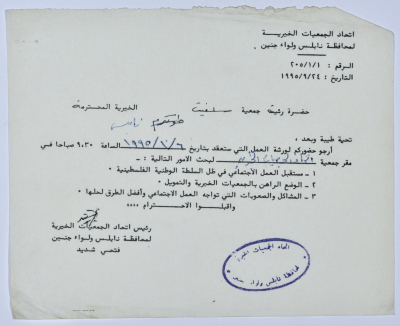 اتحاد الجمعيات الخيريــة
لمحافظة نابلس ولواء جنين
الرقم : ٢٠٥/١/١
التاريخ : ١٩٩٥/٩/٢٤
حضرة رئيسة جمعية سلفيت الخيرية المحترمة
تحية طيبة وبعد ،
أرجو حضوركم لورشة العمل التي ستعقد بتاريخ ١٩٩٥/١٠/٦ الساعة ٩٫٣٠ صباحا في
مقر جمعية لبحث الامور التالية :
١ - مستقبل العمل الاجتماعي في ظل السلطة الوطنية الفلسطينية
٢ - الوضع الراهن بالجمعيات الخيرية والتمويل
٣ - المشاكل والصعوبات التي تواجه العمل الاجتماعي وأفضل الطرق لحلها
واقبلــوا الاحتــرام ،،،،
رئيس اتحاد الجمعيات الخيرية
لمحافظة نابلس ولواء جنين
فتحي شديد
اتحاد الجمعيات الخيرية
لمحافظة نابلس ولواء جنين